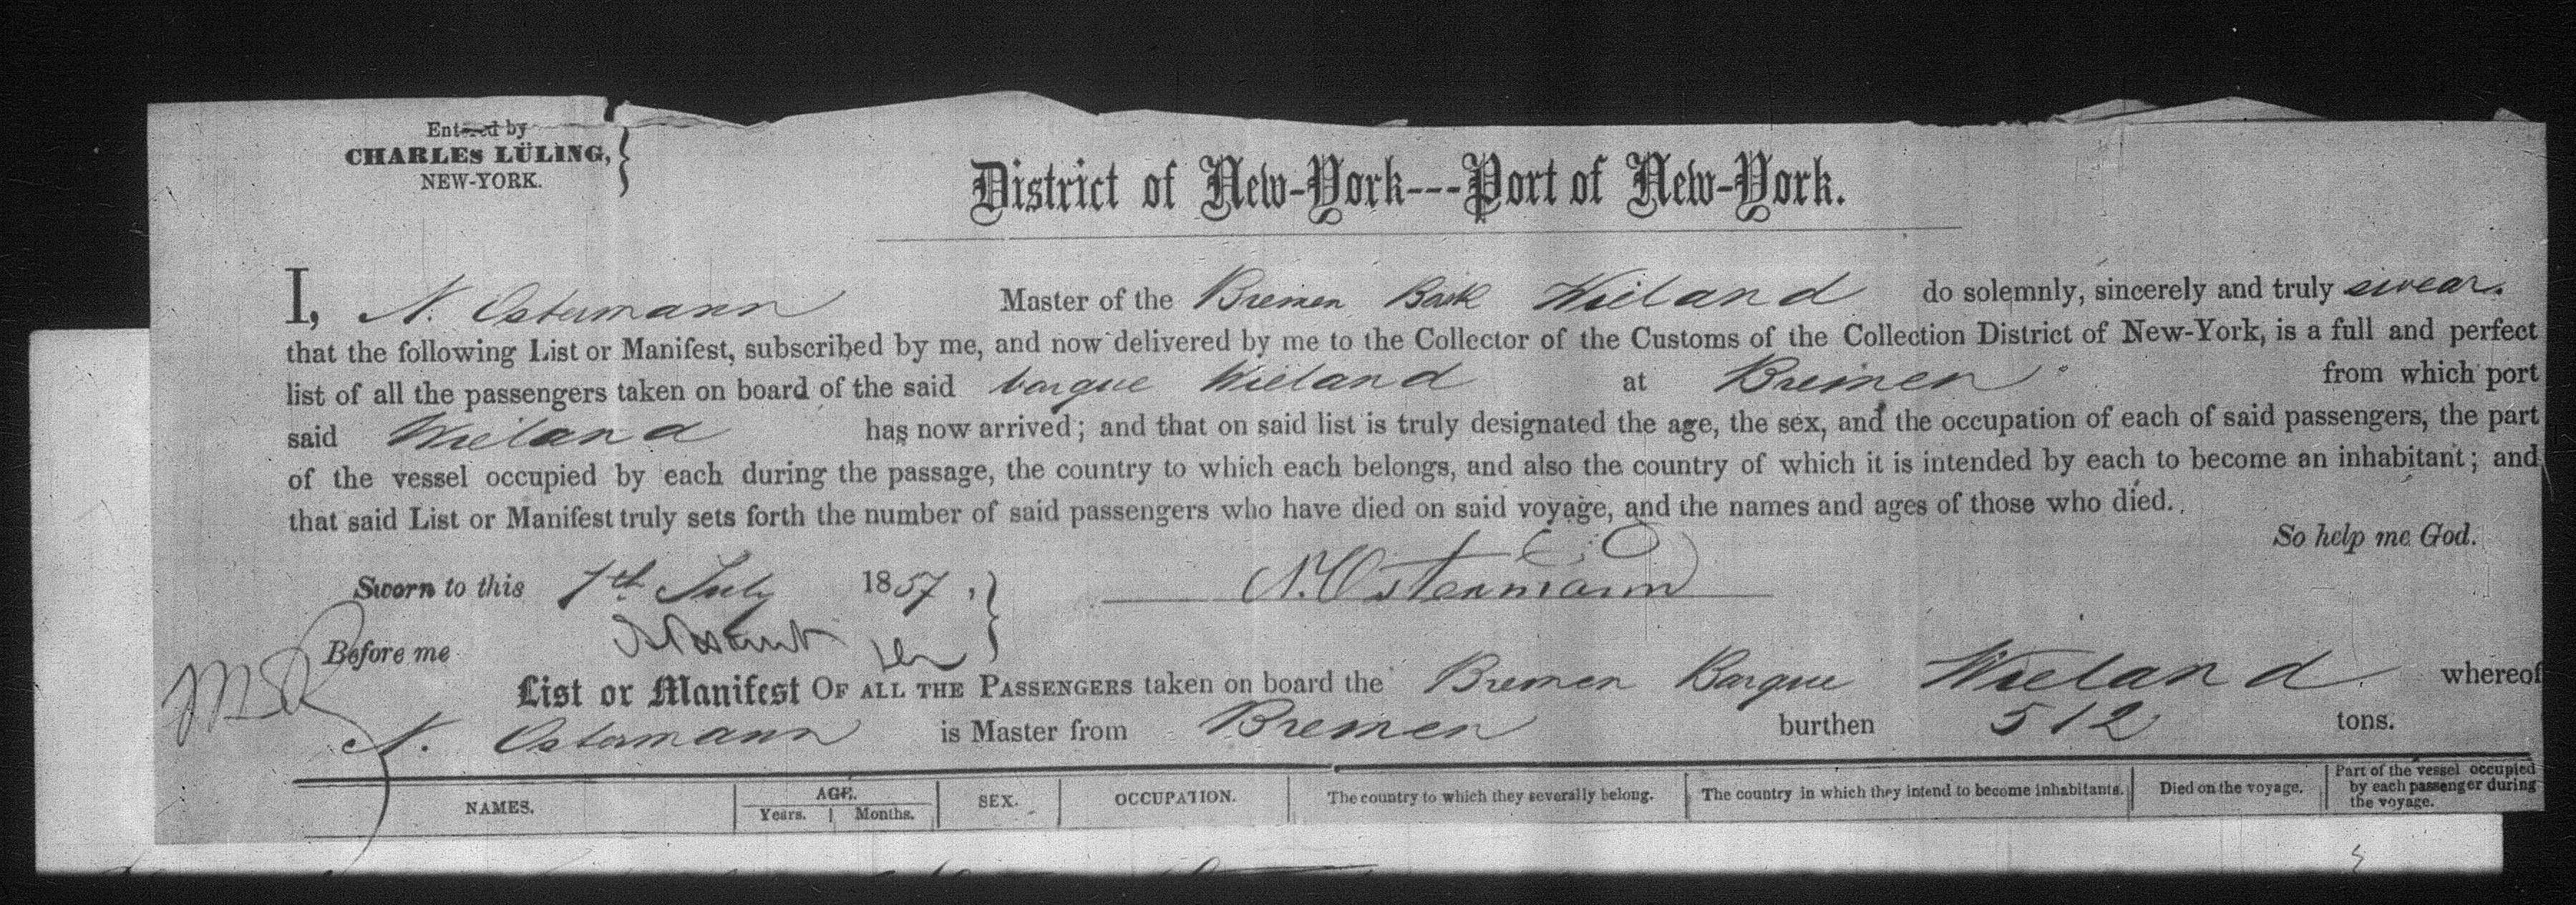 Entered by
CHARLES LÜLING,
NEW-YORK.
District of New-York---Port of New-York.
I, N. Ostermann Master of the Bremen Bark Wieland do solemnly, sincerely and truly swear.
that the following List or Manifest, subscribed by me, and now delivered by me to the Collector of the Customs of the Collection District of New-York, is a full and perfect
list of all the passengers taken on board of the said barque Wieland at Bremen from which port
said Wieland has now arrived; and that on said list is truly designated the age, the sex, and the occupation of each of said passengers, the part
of the vessel occupied by each during the passage, the country to which each belongs, and also the country of which it is intended by each to become an inhabitant; and
that said List or Manifest truly sets forth the number of said passengers who have died on said voyage, and the names and ages of those who died.
So help me God.
Sworn to this 7th July 1857, N. Ostermann
Before me
List or Manifest OF ALL THE PASSENGERS taken on board the Bremen Barque Wieland whereof
N. Ostermann is Master from Bremen burthen 512 tons.
NAMES. AGE. Years. Months. SEX. OCCUPATION. The country to which they severally belong. The country in which they intend to become inhabitants. Died on the voyage. Part of the vessel occupied by each passenger during the voyage.